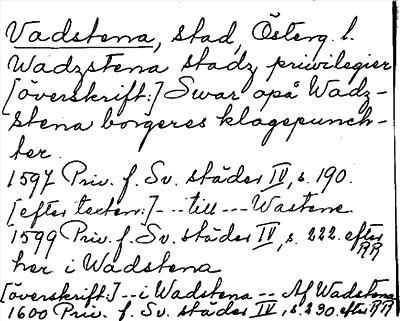 Vadstena, stad, Österg. l.
Wadzstena stadz priwilegier
[överskrift:] Swar opå Wadz-
stena borgeres klagepunch-
ter.
1597 Priv. f. Sv. städer IV, s. 190.
[efter texten:] --- till --- Wastene
1599 Priv. f. Sv. städer IV, s. 222. efter RR
her i Wadstena
[överskrift:] -- i Wadstena -- Af Wadstena
1600 Priv. f. Sv. städer IV, s. 230. efter RR